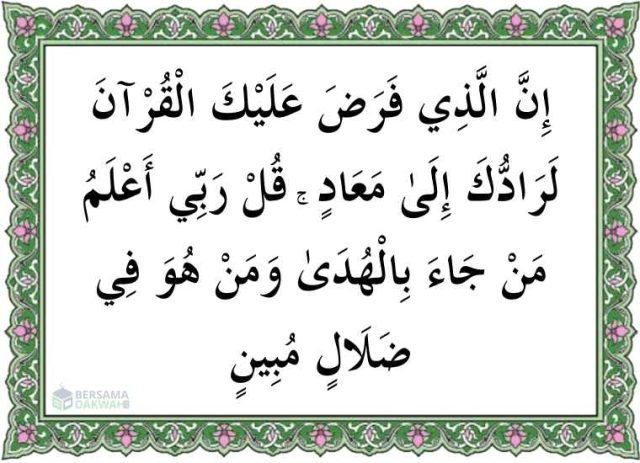 إِنَّ الَّذِي فَرَضَ عَلَيْكَ الْقُرْآنَ
لَرَادُّكَ إِلَىٰ مَعَادٍ ۚ قُلْ رَبِّي أَعْلَمُ
مَنْ جَاءَ بِالْهُدَىٰ وَمَنْ هُوَ فِي
ضَلَالٍ مُبِينٍ
BERSAMA
DAKWAH